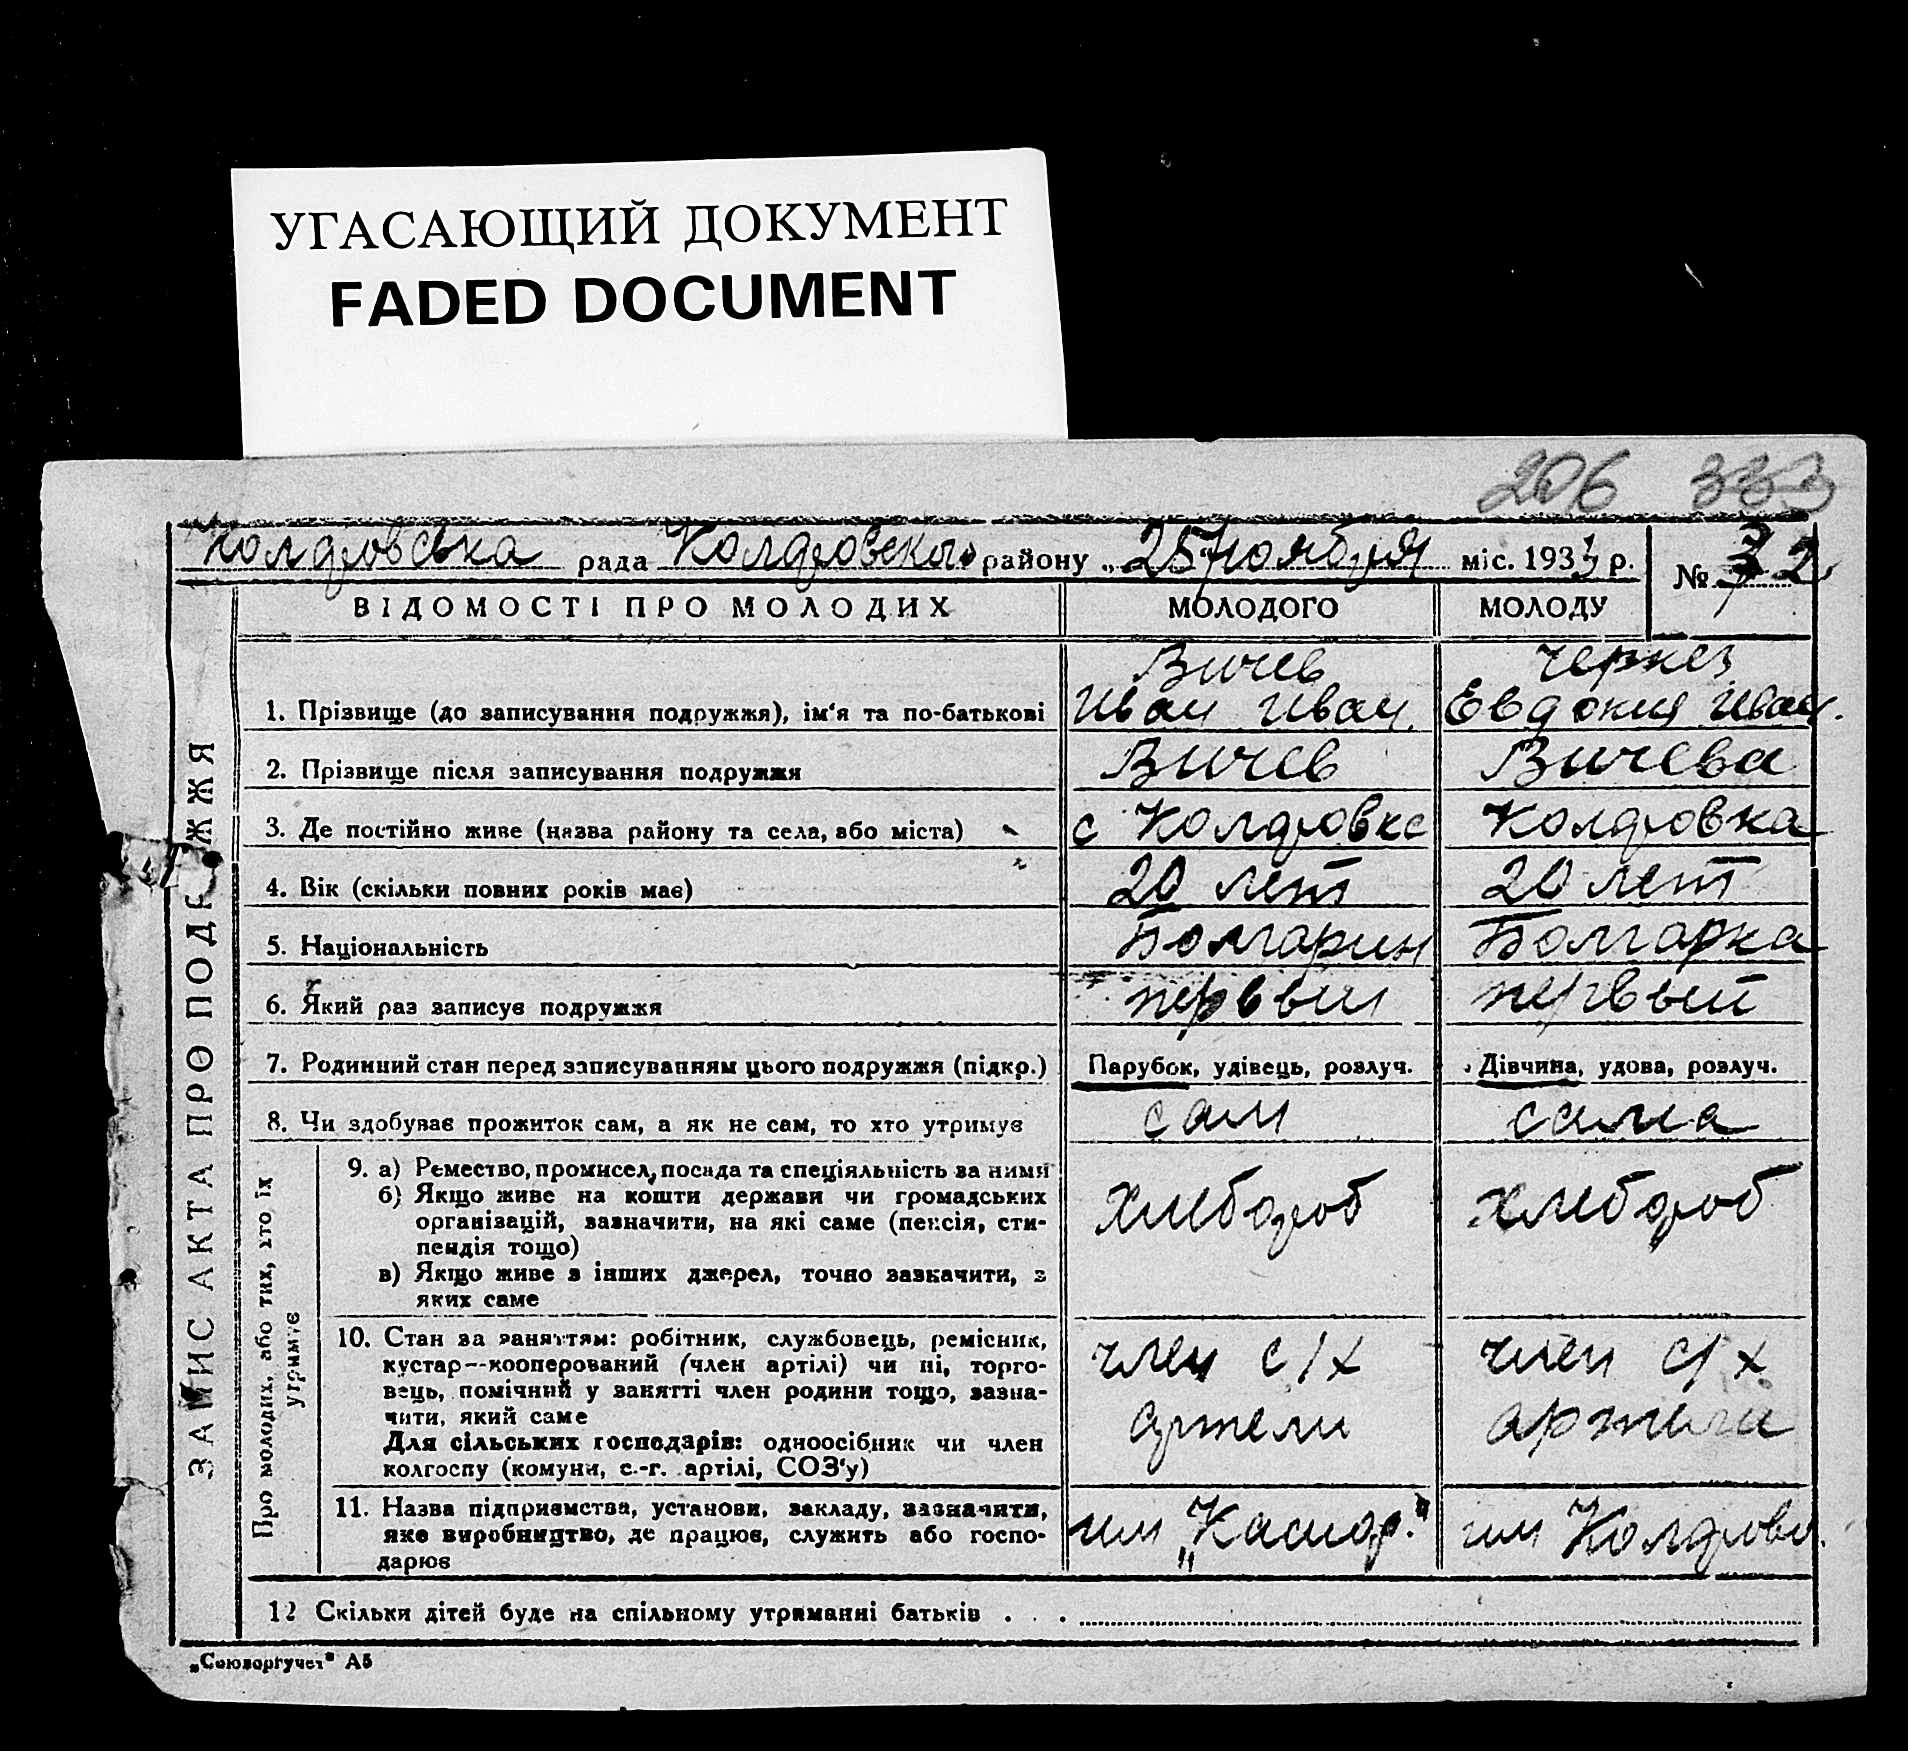 УГАСАЮЩИЙ ДОКУМЕНТ
FADED DOCUMENT
206 333
рада району „25 ноября міс. 1933 р. № 32
ЗАПИС АКТА ПРО ПОДРУЖЖЯ
ВІДОМОСТІ ПРО МОЛОДИХ МОЛОДОГО МОЛОДУ
Вичев Черкез
1. Прізвище (до записування подружжя), ім'я та по-батькові Иван Иван. Евдокия Иван.
2. Прізвище після записування подружжя Вичев Вичева
3. Де постійно живе (назва району та села, або міста) с
4. Вік (скільки повних років має) 20 лет 20 лет
5. Національність Болгарин Болгарка
6. Який раз записує подружжя первый первый
7. Родинний стан перед записуванням цього подружжя (підкр.) Парубок, удівець, розлуч. Дівчина, удова, розлуч.
8. Чи здобуває прожиток сам, а як не сам, то хто утримує сам сама
Про молодих, або тих, хто їх
утримує
9. а) Ремество, промисел, посада та спеціяльність за ними
б) Якщо живе на кошти держави чи громадських хлебороб хлебороб
організацій, зазначити, на які саме (пенсія, сти-
пендія тощо)
в) Якщо живе з інших джерел, точно зазначити, з
яких саме
10. Стан за заняттям: робітник, службовець, ремісник,
кустар--кооперований (член артілі) чи ні, торго- член с/х член с/х
вець, помічний у занятті член родини тощо, зазна-
чити, який саме артели артели
Для сільських господарів: одноосібник чи член
колгоспу (комуни, с.-г. артілі, СОЗ'у)
11. Назва підприємства, установи, закладу, зазначити,
яке виробництво, де працює, служить або госпо- им им
дарює
12 Скільки дітей буде на спільному утриманні батьків . . .
„Союзоргучет" А5